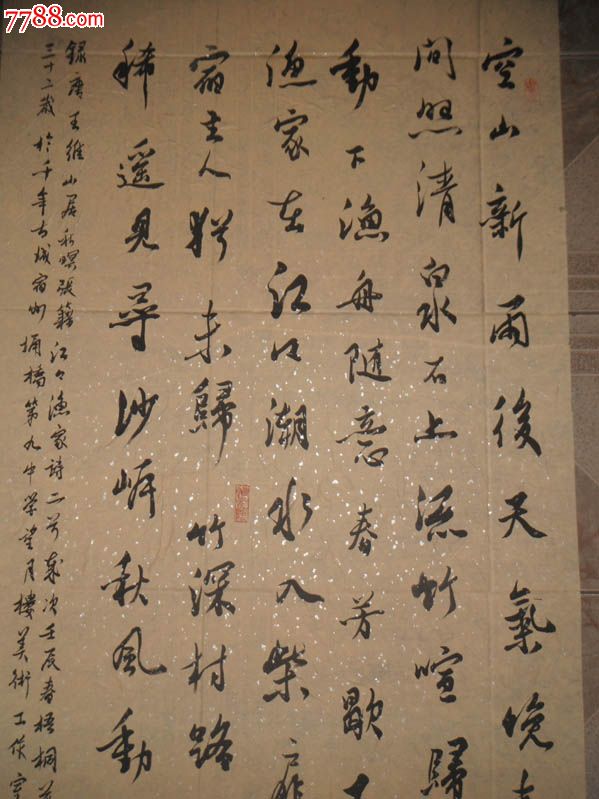 7788.com
空山新雨後天氣晚
間照清泉石上流竹喧歸
動下漁舟隨意春芳歇
漁家在江口潮水入柴扉
宿主人猶未歸竹深村路
稀遥見尋沙岸秋風動
録唐王維山居秋暝張籍江口漁家詩二首歲次壬辰春梧桐
三十二歲於千年古城宿州埇橋第九中學望月樓美術工作室